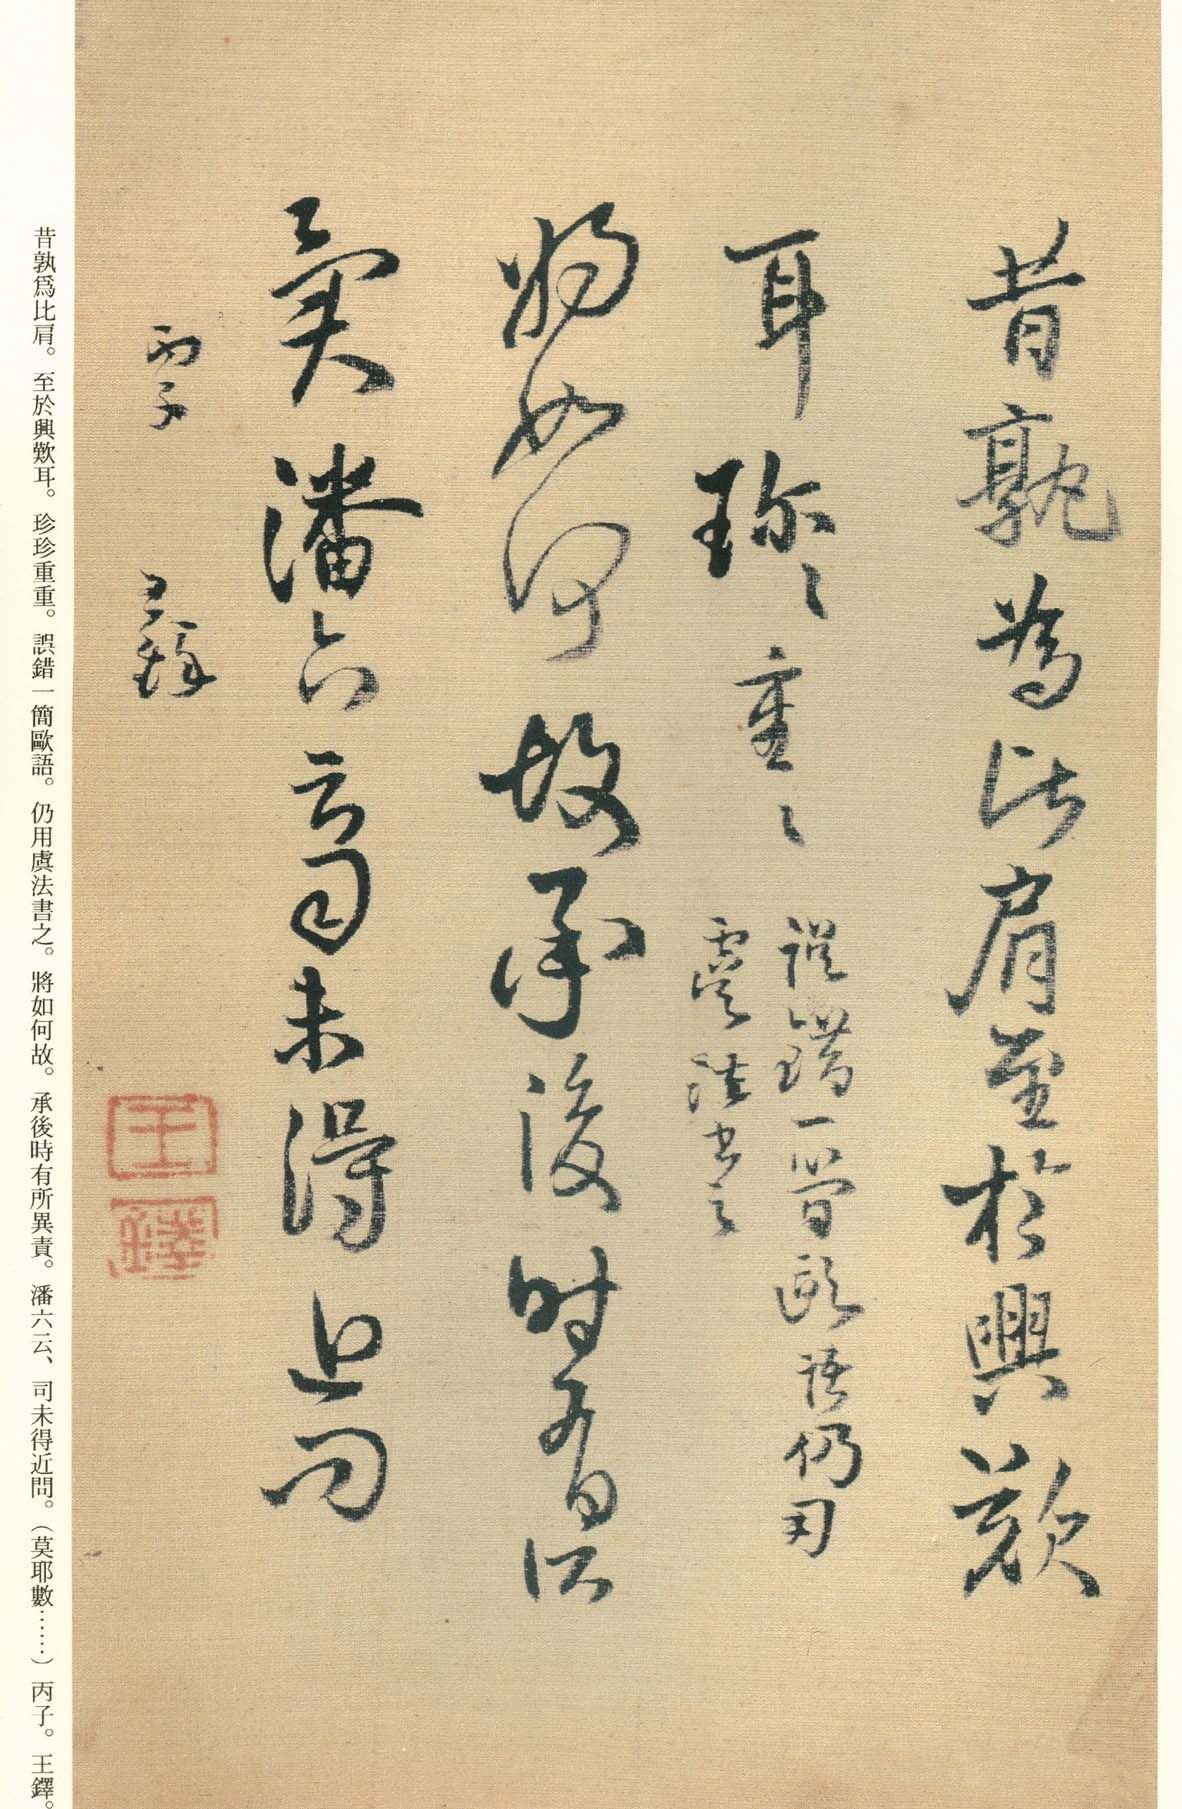 昔孰為比肩至於興歎
耳珍〻重〻
誤錯一簡歐語仍用
虞法書之
將如何故承後時有所
異責潘六云司未得近問
丙子 王鐸
王
鐸
昔孰爲比肩。至於興歎耳。珍珍重重。誤錯一簡歐語。仍用虞法書之。將如何故。承後時有所異責。潘六云、司未得近問。（莫耶數……）丙子。王鐸。